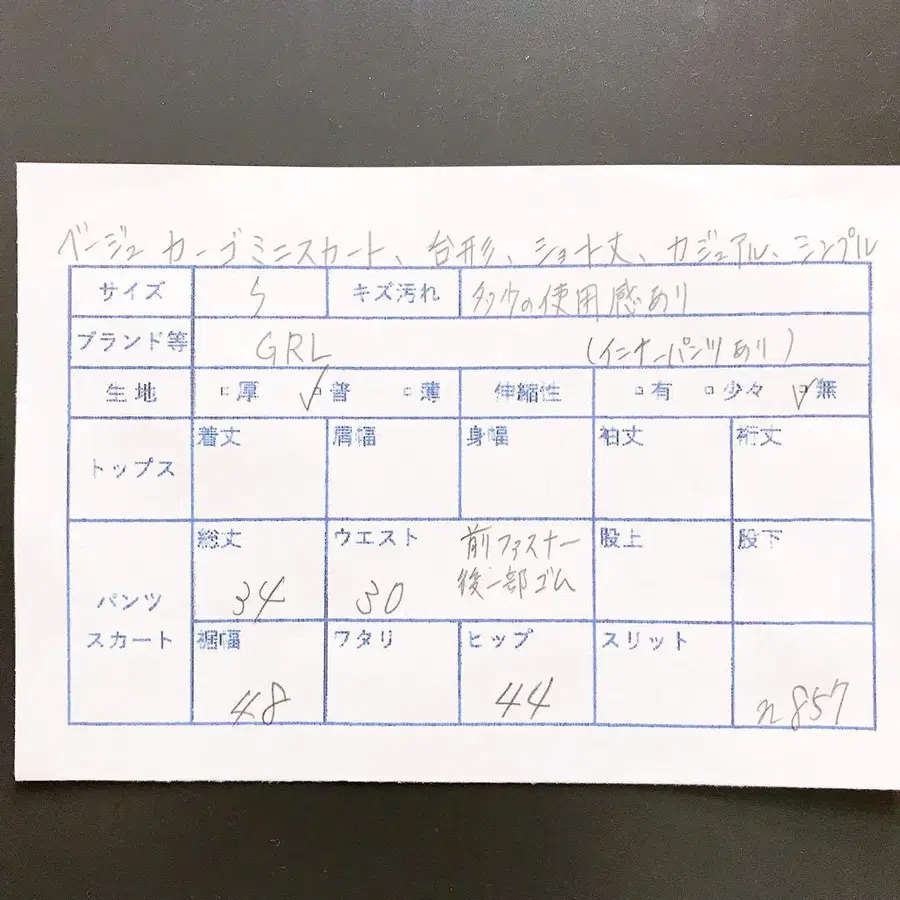 ベージュ カーゴミニスカート、台形、ショート丈、カジュアル、シンプル
サイズ S キズ汚れ 多少の使用感あり
ブランド等 GRL (インナーパンツあり)
生地 □厚 ✓□普 □薄 伸縮性 □有 □少々 ✓□無
トップス 着丈 肩幅 身幅 袖丈 裄丈
パンツ スカート
総丈 34 ウエスト 30 前ファスナー 後一部ゴム 股上 股下
裾幅 48 ワタリ ヒップ 44 スリット n857